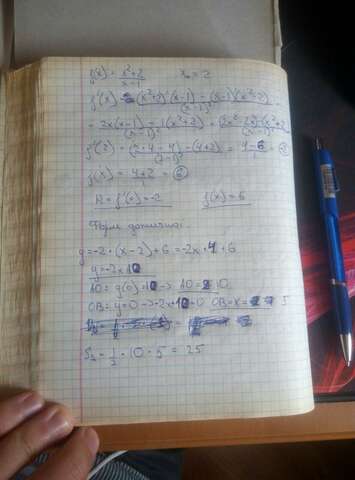 f(x) = x²+2 / x-1    x₀ = 2
f'(x) = (x²+2)'(x-1) - (x-1)'(x²+2) / (x-1)² =
= 2x(x-1) - 1(x²+2) / (x-1)² = (2x²-2x)-(x²+2) / (x-1)²
f'(2) = (2·4-4)-(4+2) / (2-1)² = 4-6 / 1 = -2
f(x) = 4+2 / 1 = 6
k = f'(x) = -2    f(x) = 6
дотичної
y = -2·(x-2)+6 = -2x+4+6
y = -2x+10
AO = y(0) = 10 -> AO = 10
OB = y=0 -> -2x+10=0 OB = x = 5
S = 1/2 · 10 · 5 = 25